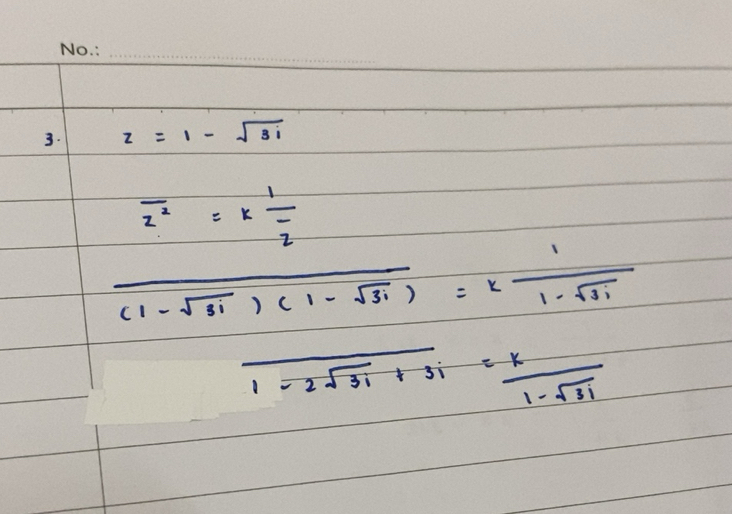 No.:
3. z = 1 - √3i
z̅²̅ = k 1/z̅
\overline{(1 - √3i)(1 - √3i)} = k 1/(1 - √3i)
\overline{1 - 2√3i + 3i} = k/(1 - √3i)